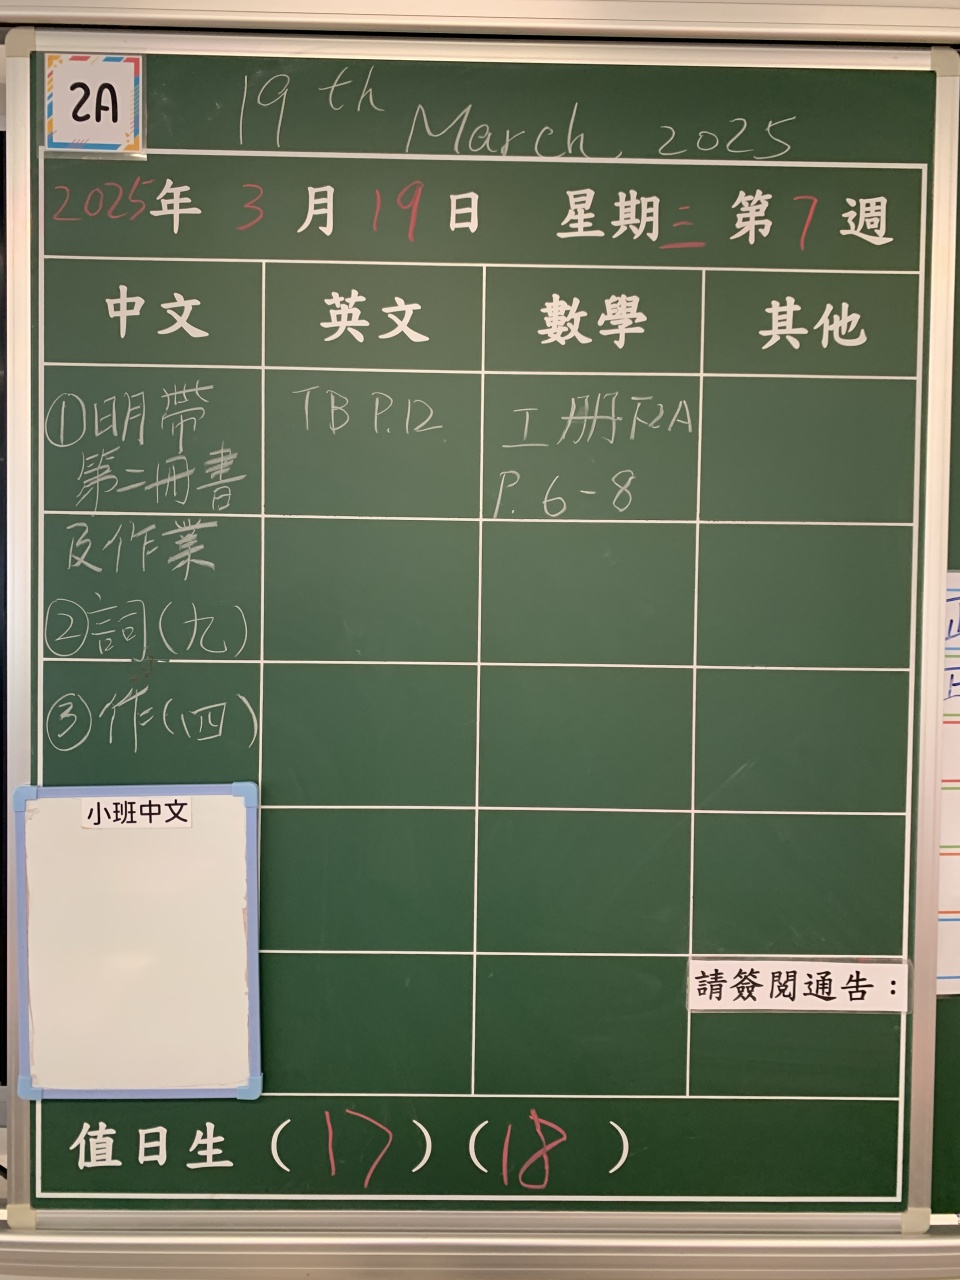 2A
19th March, 2025
2025年 3 月 19 日 星期三 第 7 週
中文 英文 數學 其他
①明帶
第二冊書
及作業
②詞(九)
③作(四)
TB P.12
工冊下2A
P. 6-8
小班中文
請簽閱通告：
值日生 ( 17 ) ( 18 )